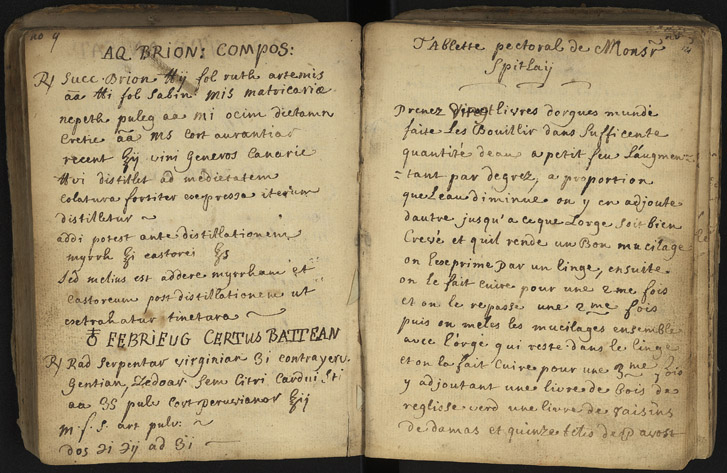 no 9
AQ BRION: COMPOS:
R/ Succ Brion ℔ij fol ruth artemis
aa ℔i fol Sabin Mis matricariæ
nepeth puleg aa Mi ocim dictamn
Cretic aa Ms Cort aurantior
recent ℥ij vini Generos Canarie
℔vi distillet ad medietatem
Colatura fortiter coexpressa iterum
distilletur ~
addi potest ante distillationem
myrrh ℥i castorei ℥s
Sed melius est addere myrrham et
Castoreum post distillationem ut
extrahatur tinctura ~
♁ FEBRIFUG CERTUS BATTEAN
R/ Rad Serpentar virginiar ʒi contrayerv.
Gentian Zedoar Sem Citri Cardui Sti
aa ʒs pulv Cort peruvianor ℥ij
m. f. s. art pulv. ~
dos ℈i ℈ij ad ʒi ~
no
Tablette pectoral de Monsr
Spitlaij
Prenez livres dorgues mundé
faite Les Bouillir dans Sufficente
quantité deau a petit feu L'augmen=
=tant par degrez, a proportion
que Leau diminue on y en adjoute
dautre jusqu'a ce que Lorge soit bien
Crevé et quil rende un Bon mucilage
on Lexprime par un linge, ensuite
on le fait cuire pour une 2me fois
et on le repasse une 2me fois
puis on meles les mucilages ensemble
avec L'orge qui reste dans le linge
et on la fait Cuire pour une 3me fois
y adjoutant une livre de Bois de
reglisse verd une livre de raisins
de damas et quinze de Pavost